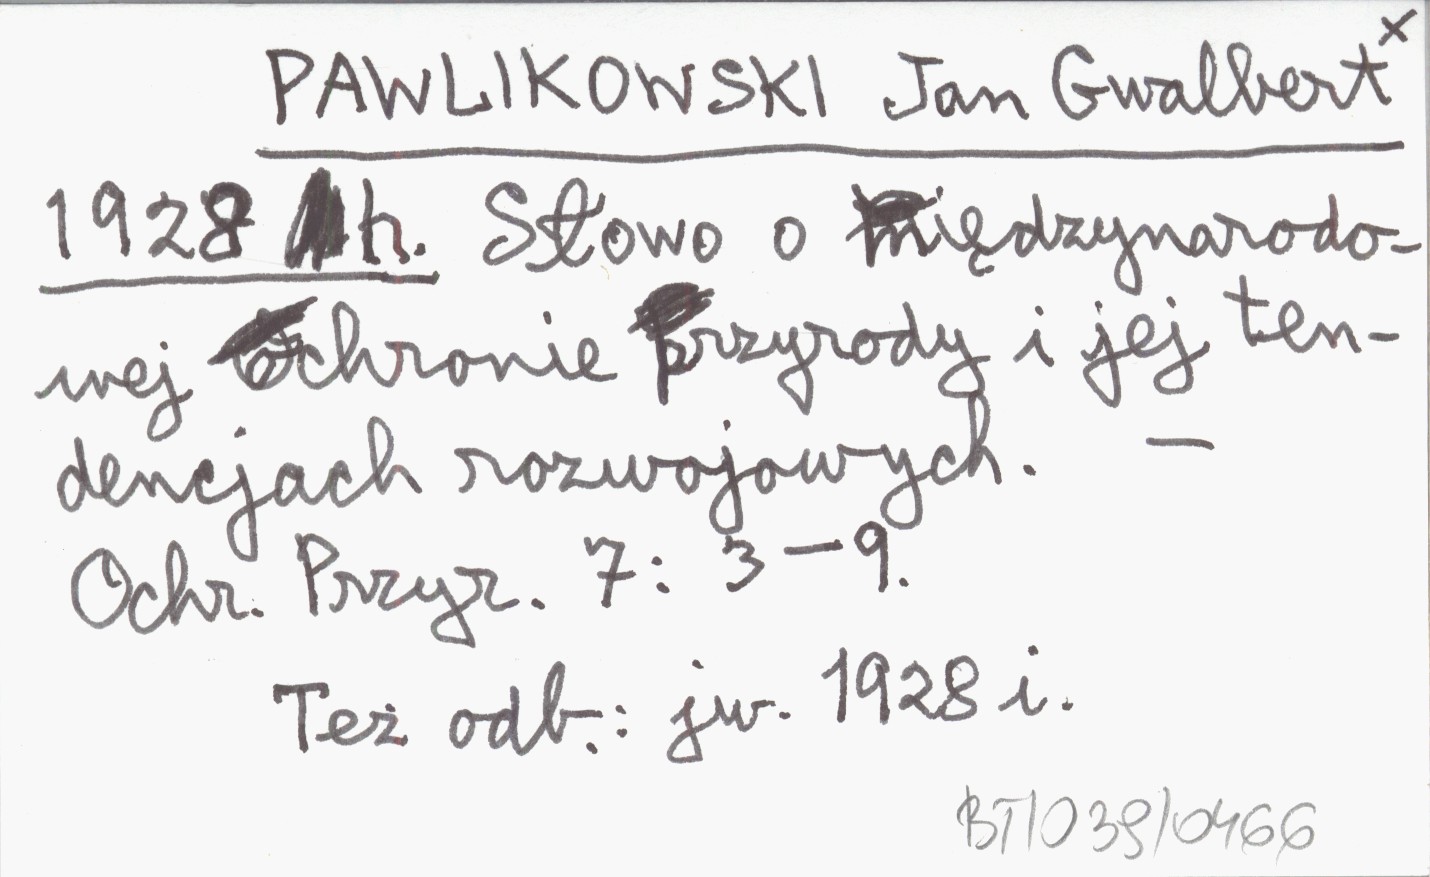 PAWLIKOWSKI Jan Gwalbert x
1928 h. Słowo o międzynarodo-
wej ochronie przyrody i jej ten-
dencjach rozwojowych. —
Ochr. Przyr. 7: 3-9.
Też odb.: jw. 1928 i.
BT/039/0466